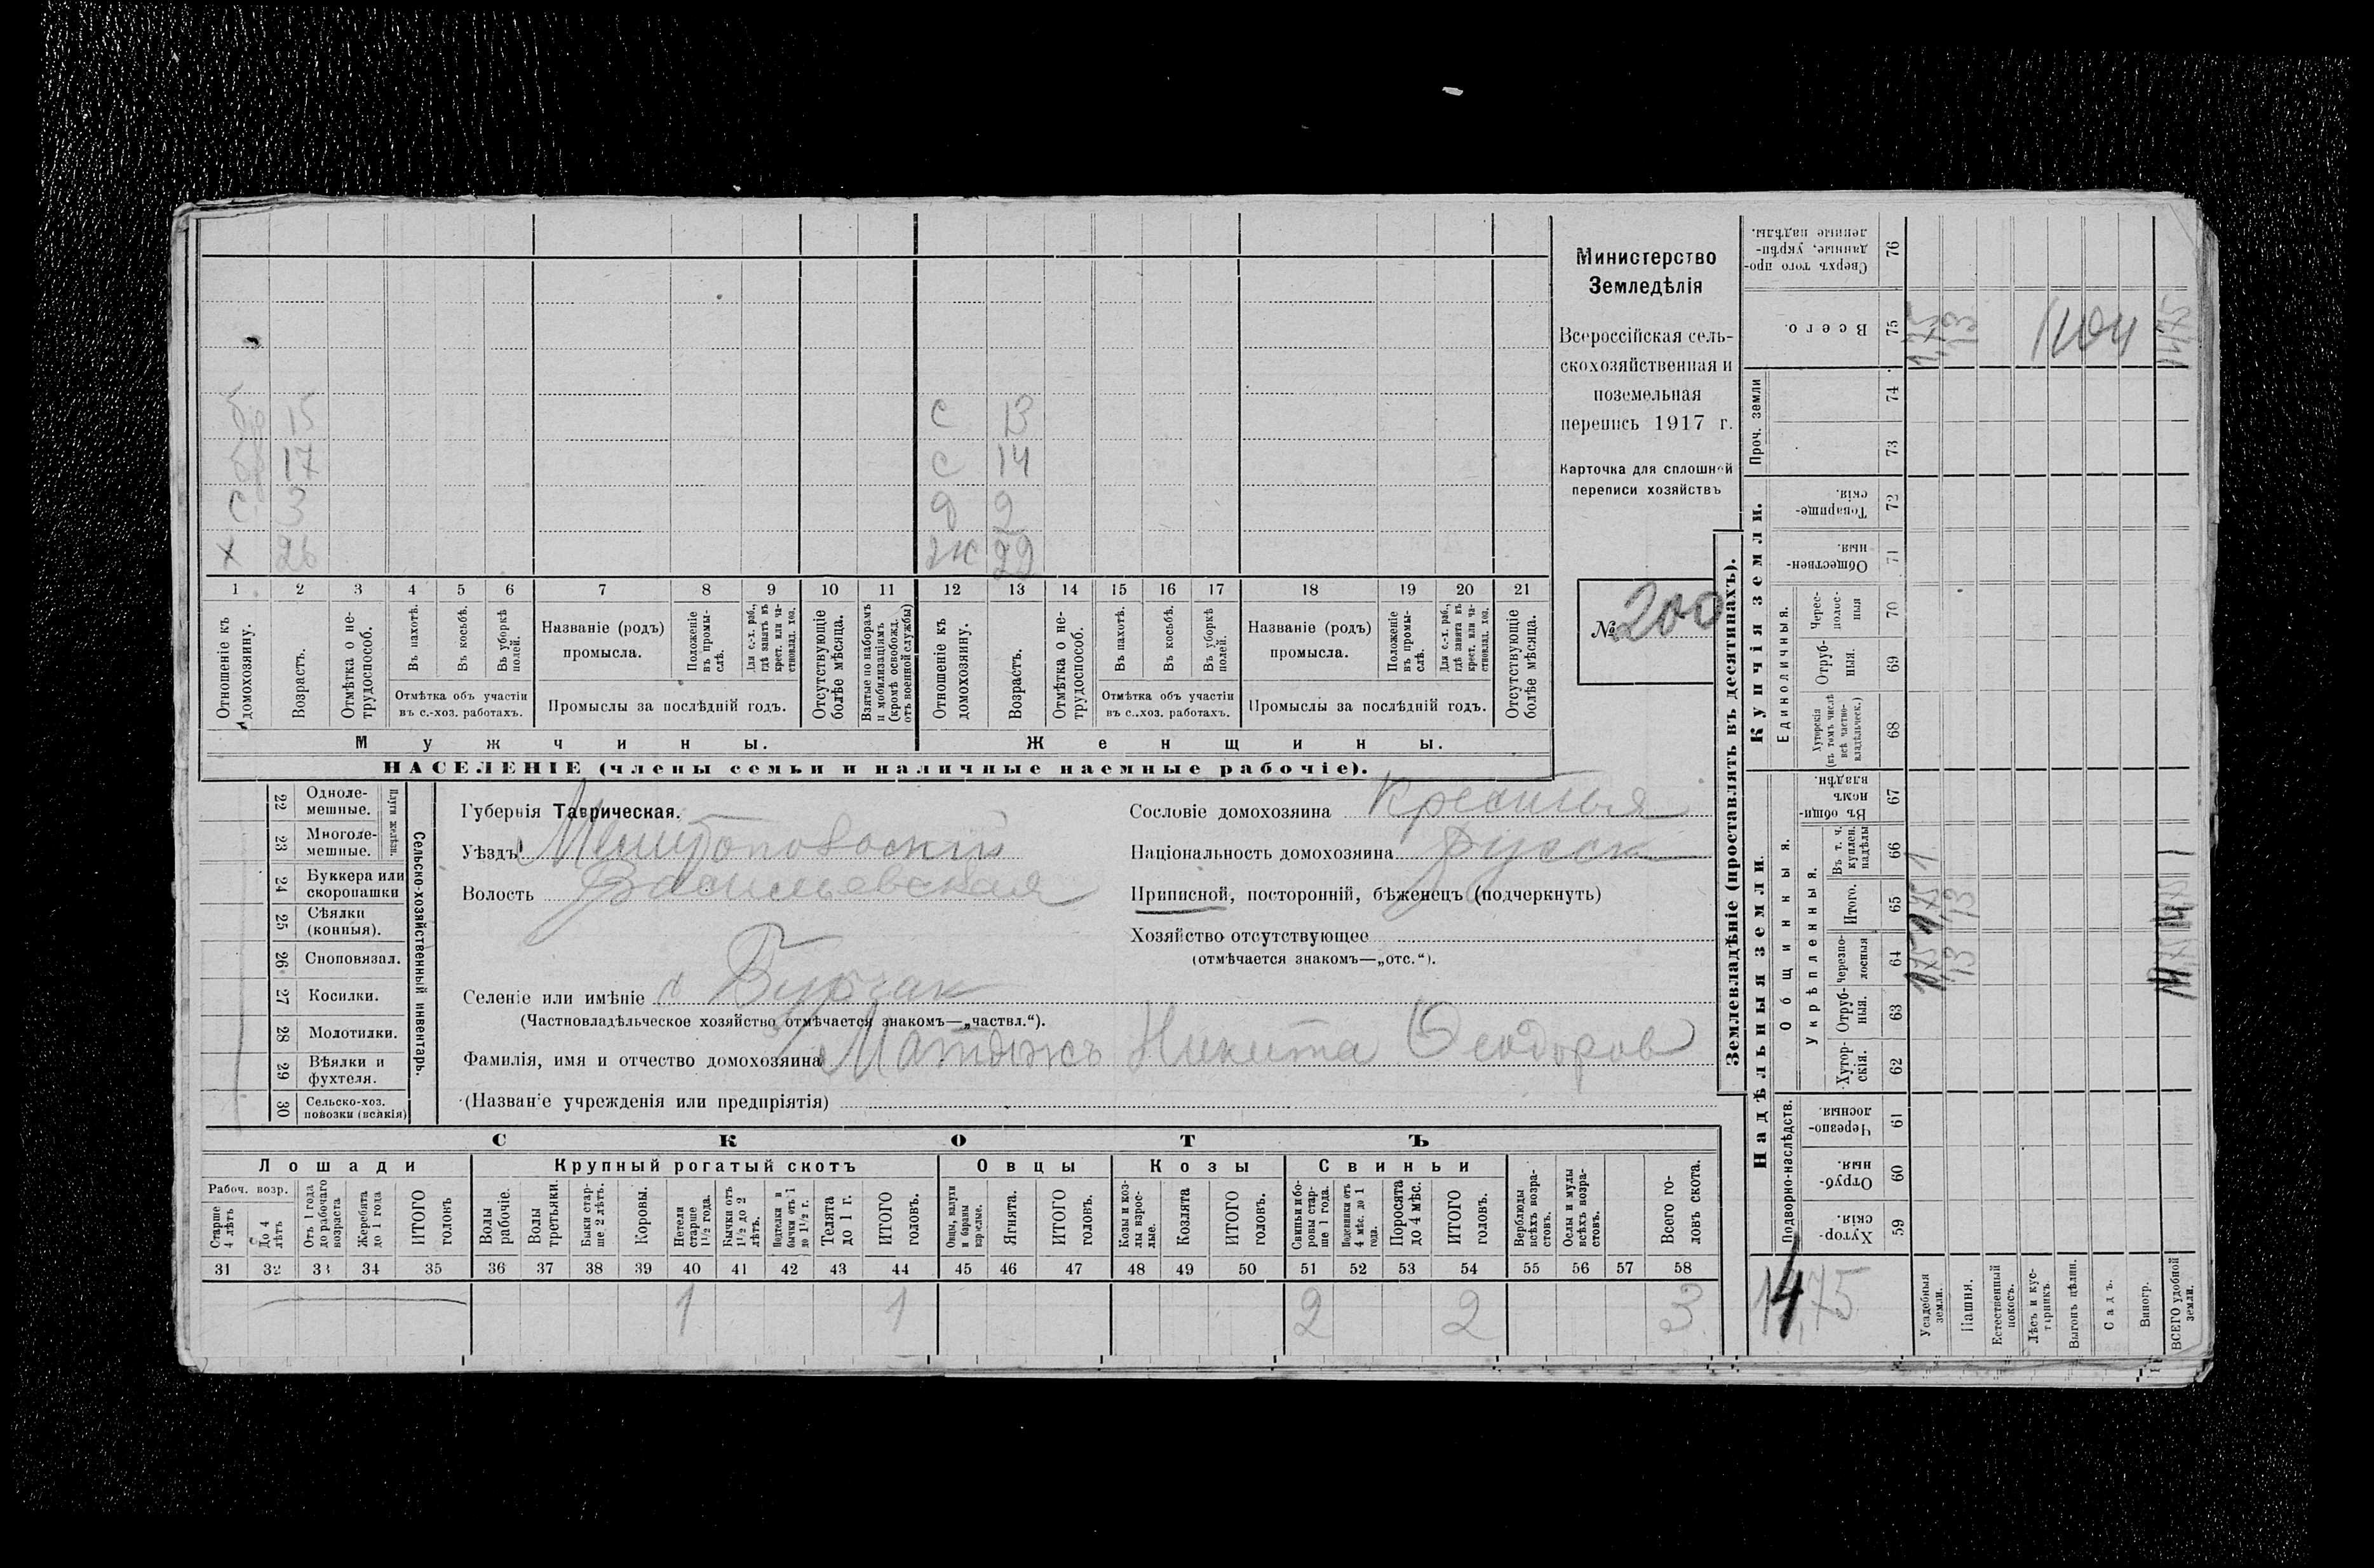 Министерство
Земледѣлія
Всероссійская сель-
скохозяйственная и
поземельная
перепись 1917 г.
Карточка для сплошной
переписи хозяйствъ
№ 200
бр 15 С 13
бр 17 С 14
С 3 д 2
Х 26 ж 22
1 2 3 4 5 6 7 8 9 10 11 12 13 14 15 16 17 18 19 20 21
Отношеніе къ домохозяину.
Возрастъ.
Отмѣтка о не-трудоспособ.
Въ пахотѣ.
Въ косьбѣ.
Въ уборкѣ полей.
Отмѣтка объ участіи въ с.-хоз. работахъ.
Названіе (родъ) промысла.
Положеніе въ промы-слѣ.
Для с.-х. раб., гдѣ занятъ въ крест. или ча-стновлад. хоз.
Промыслы за послѣдній годъ.
Отсутствующіе болѣе мѣсяца.
Взятые по наборамъ и мобилизаціямъ (кромѣ освобожд. отъ военной службы)
Отношеніе къ домохозяину.
Возрастъ.
Отмѣтка о не-трудоспособ.
Въ пахотѣ.
Въ косьбѣ.
Въ уборкѣ полей.
Отмѣтка объ участіи въ с.-хоз. работахъ.
Названіе (родъ) промысла.
Положеніе въ промы-слѣ.
Для с.-х. раб., гдѣ занята въ крест. или ча-стновлад. хоз.
Промыслы за послѣдній годъ.
Отсутствующіе болѣе мѣсяца.
Мужчины. Женщины.
НАСЕЛЕНІЕ (члены семьи и наличные наемные рабочіе).
22 Одноле-мешные.
23 Многоле-мешные.
Плуги желѣзн.
24 Буккера или скоропашки
25 Сѣялки (конныя).
26 Сноповязал.
27 Косилки.
28 Молотилки.
29 Вѣялки и фухтеля.
30 Сельско-хоз. повозки (всякія)
Сельско-хозяйственный инвентарь.
Губернія Таврическая.
Уѣздъ Мелитопольскій
Волость Васильевская
Селеніе или имѣніе с Бурчак
(Частновладѣльческое хозяйство отмѣчается знакомъ—„частвл.“).
Фамилія, имя и отчество домохозяина Никита Феодоров
(Названіе учрежденія или предпріятія)
Сословіе домохозяина
Національность домохозяина русск
Приписной, посторонній, бѣженецъ (подчеркнуть)
Хозяйство отсутствующее
(отмѣчается знакомъ—„отс.“).
СКОТЪ
Лошади Крупный рогатый скотъ Овцы Козы Свиньи
Рабоч. возр.
Старше 4 лѣтъ
До 4 лѣтъ
Отъ 1 года до рабочаго возраста
Жеребята до 1 года
ИТОГО головъ
Волы рабочіе.
Волы третьяки.
Быки стар-ше 2 лѣтъ.
Коровы.
Нетели старше 1½ года.
Бычки отъ 1½ до 2 лѣтъ.
Подтелки и бычки отъ 1 до 1½ г.
Телята до 1 г.
ИТОГО головъ.
Овцы, валухи и бараны взрослые.
Ягнята.
ИТОГО головъ.
Козы и коз-лы взрос-лые.
Козлята
ИТОГО головъ.
Свиньи и бо-ровы стар-ше 1 года.
Подсвинки отъ 4 мѣс. до 1 года.
Поросята до 4 мѣс.
ИТОГО головъ.
Верблюды всѣхъ возра-стовъ.
Ослы и мулы всѣхъ возра-стовъ.
Всего го-ловъ скота.
31 32 33 34 35 36 37 38 39 40 41 42 43 44 45 46 47 48 49 50 51 52 53 54 55 56 57 58
1 1 2 2 3
Землевладѣніе (проставлять въ десятинахъ).
Надѣльныя земли. Купчія земли.
Подворно-наслѣдств.
Общинныя.
Укрѣпленныя.
Единоличныя.
Проч. земли
Хутор-скія. 59
Отруб-ныя. 60
Черезпо-лосныя. 61
Хутор-скія. 62
Отруб-ныя. 63
Черезпо-лосныя 64
Итого. 65
Въ т. ч. куплен. надѣлы 66
Въ общи-номъ владѣн. 67
Хуторскія (въ томъ числѣ всѣ частно-владѣльческ.) 68
Отруб-ныя. 69
Черес-полос-ныя 70
Обществен-ныя 71
Товарище-скія. 72
73
74
Всего. 75
Сверхъ того про-данные, укрѣп-ленные надѣлы. 76
Усадебныя земли.
Пашня.
Естественный покосъ.
Лѣсъ и кус-тарникъ.
Выгонъ цѣлин.
Садъ.
Виногр.
ВСЕГО удобной земли.
1,75
13
14,75